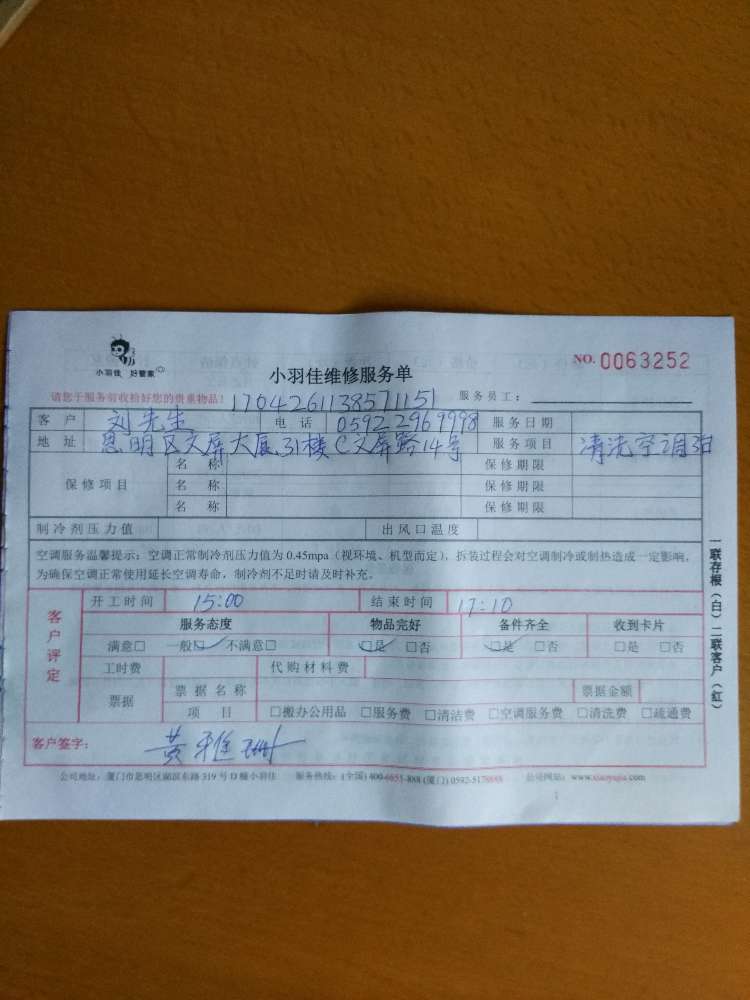 小羽佳 好管家
小羽佳维修服务单
NO. 0063252
请您于服务前收拾好您的贵重物品！
17042611385711151
服务员工：
客户 刘先生 电话 0592 2969998 服务日期
地址 思明区文屏大厦31楼C文屏路14号 服务项目 清洗空调3台
保修项目 名称 保修期限
名称 保修期限
名称 保修期限
制冷剂压力值 出风口温度
空调服务温馨提示：空调正常制冷剂压力值为 0.45mpa（视环境、机型而定），拆装过程会对空调制冷或制热造成一定影响，
为确保空调正常使用延长空调寿命，制冷剂不足时请及时补充。
客户评定
开工时间 15:00 结束时间 17:10
服务态度 物品完好 备件齐全 收到卡片
满意□ 一般☑ 不满意□ ☑是 □否 ☑是 □否 □是 □否
工时费 代购材料费
票据 票据名称 票据金额
项目 □搬办公用品 □服务费 □清洁费 □空调服务费 □清洗费 □疏通费
客户签字：
公司地址：厦门市思明区湖滨东路 319 号 D 幢小羽佳 服务热线：(全国) 400-6651-888 (厦门) 0592-5178888 公司网站：www.xiaoyujia.com
一联存根（白）二联客户（红）